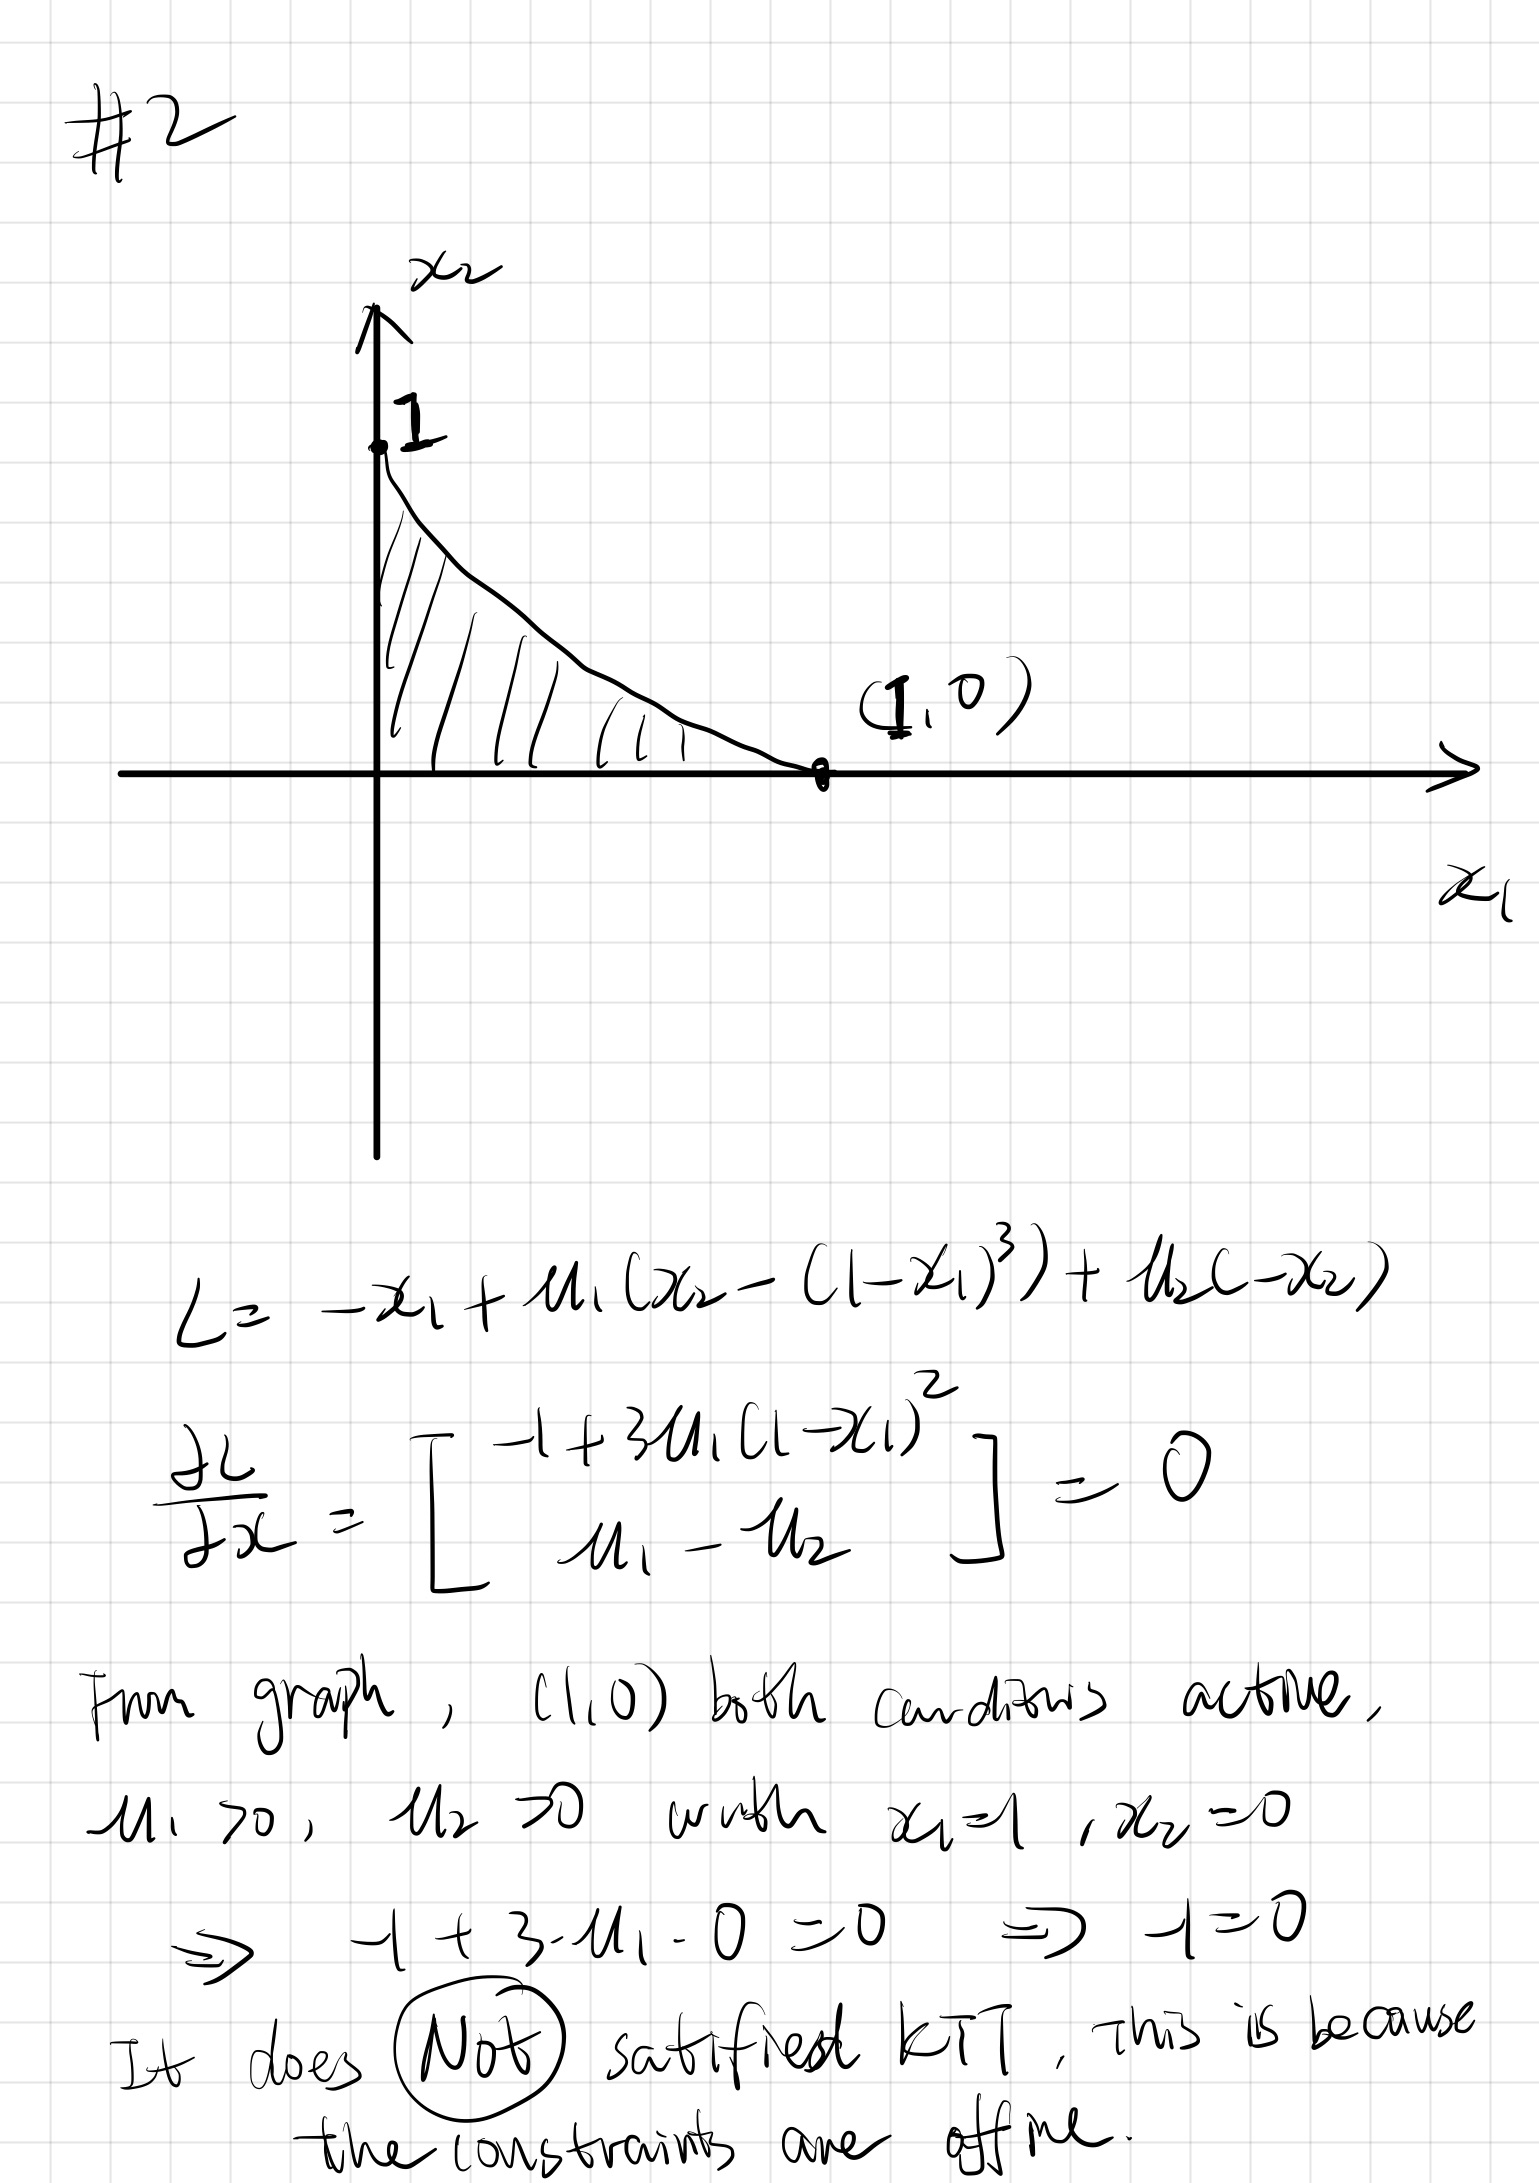 #2
x₂
1
(1, 0)
x₁
L = -x₁ + μ₁(x₂ - (1-x₁)³) + μ₂(-x₂)
∂L/∂x = [ -1 + 3μ₁(1-x₁)²
μ₁ - μ₂ ] = 0
From graph, (1,0) both conditions active,
μ₁ >0, μ₂ >0 with x₁=1, x₂=0
⇒ -1 + 3·μ₁·0 = 0 ⇒ -1=0
It does Not satisfied KTT, This is because
the constraints are affine.